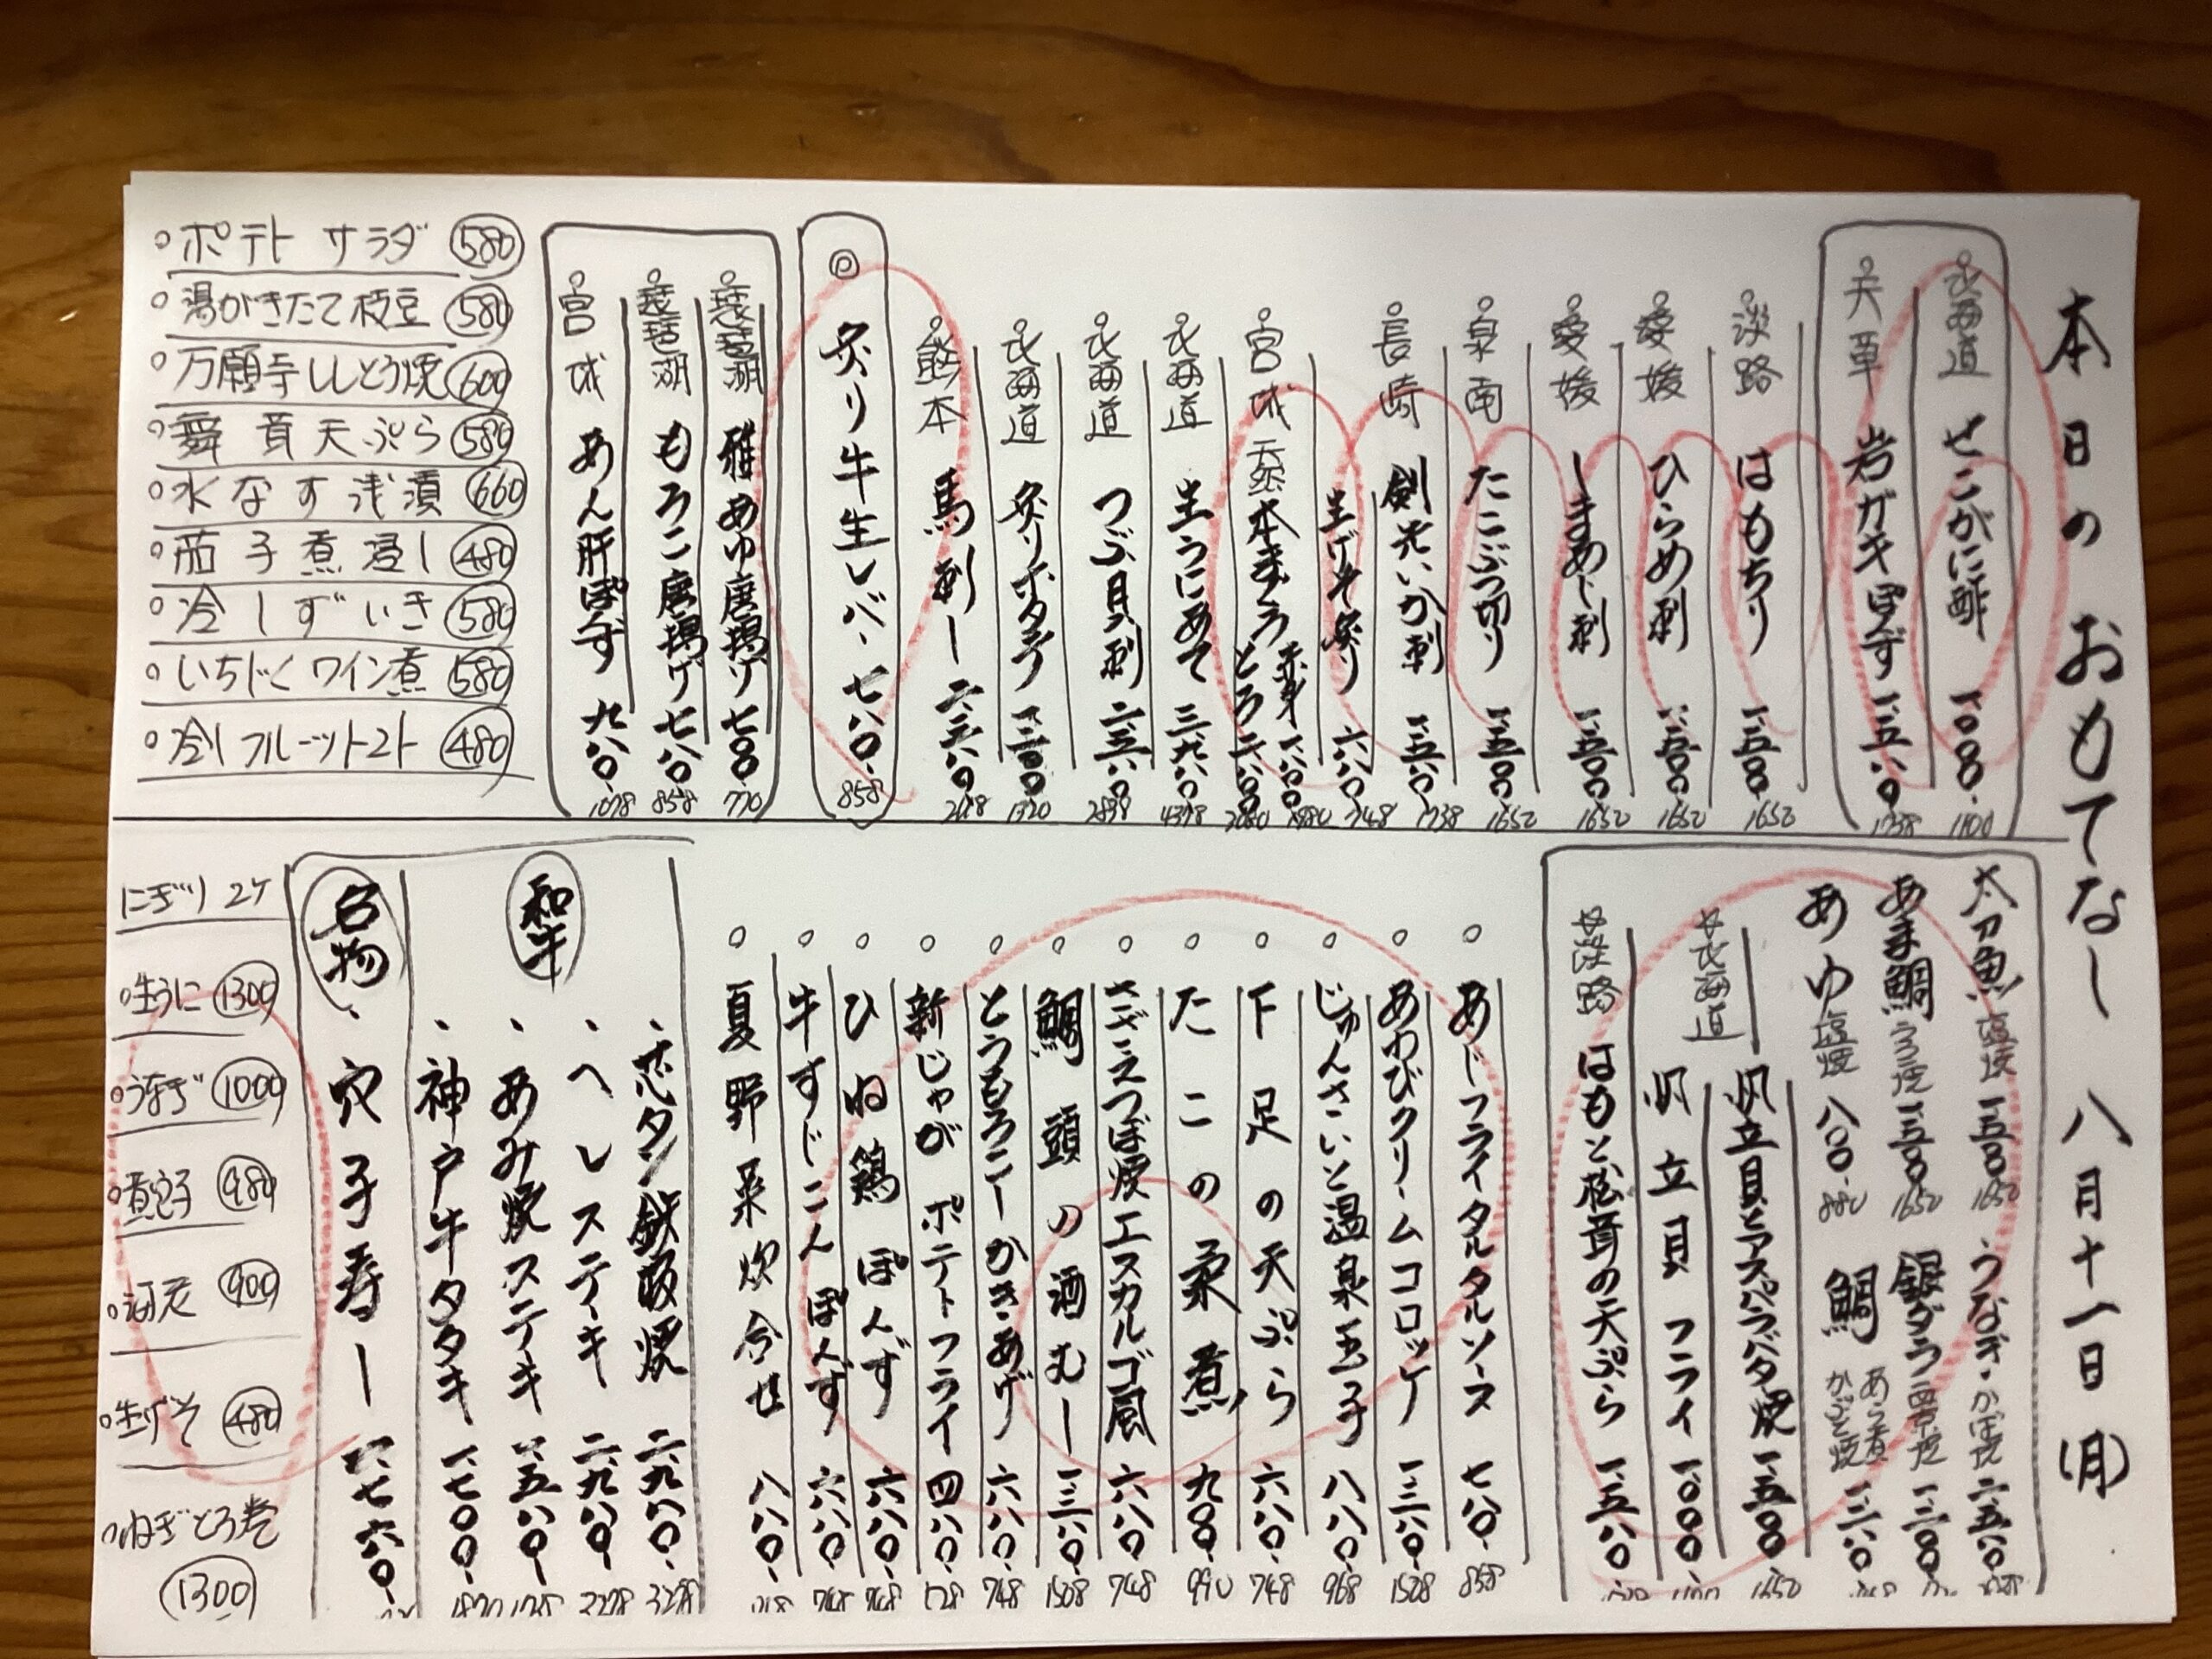 本日のおもてなし 八月十一日(月)
北海道 せこがに酢 一、〇〇〇 1100
天草 岩ガキぽんず 一、五八〇 1738
淡路 はもちり 一、五〇〇 1650
愛媛 ひらめ刺 一、五〇〇 1650
愛媛 しまあじ刺 一、五〇〇 1650
泉南 たこぶつ切り 一、五〇〇 1650
長崎 剣先いか刺 一、五八〇 1738
生げそ炙り 六八〇 748
宮城 天然本まぐろ 赤身 一、八〇〇 1980
とろ 二、八〇〇
北海道 生うにあて 三、九八〇 4378
北海道 つぶ貝刺
北海道 炙りホタテ 一、二〇〇 1320
熊本 馬刺し
◎ 炙り牛生レバー 七八〇 858
琵琶湖 稚あゆ唐揚げ 七〇〇 770
琵琶湖 もろこ唐揚げ 七八〇 858
宮城 あん肝ぽんず 九八〇 1078
ポテトサラダ 580
湯がきたて枝豆 580
万願寺ししとう焼 600
舞茸天ぷら 580
水なす浅漬 660
茄子煮浸し 480
冷しずいき 580
いちじくワイン煮 580
冷しフルーツトマト 480
太刀魚 塩焼 一、五〇〇 1650
うなぎ・かば焼 二、五八〇
あま鯛 うろこ焼 一、五〇〇 1650
銀ダラ 西京焼 一、二〇〇
あゆ 塩焼 八〇〇 880
鯛 あら煮 かぶと焼
北海道 帆立貝とアスパラバタ焼 一、五〇〇 1650
帆立貝フライ 一、〇〇〇 1100
淡路 はもと松茸の天ぷら 一、五八〇
あじフライタルタルソース 七八〇 858
あわびクリームコロッケ 一、三八〇
じゅんさいと温泉玉子 八八〇 968
下足の天ぷら 六八〇 748
たこの柔煮 九〇〇 990
さざえつぼ焼エスカルゴ風 六八〇 748
鯛頭の酒むし 一、三八〇
とうもろこしかき・あげ 六八〇 748
新じゃがポテトフライ 四八〇 528
ひね鶏ぽんず 六八〇 748
牛すじこんぽんず 六八〇 748
夏野菜炊合せ 八八〇
和牛
芯タン鉄板焼 二、九八〇 3278
ヘレステーキ 二、九八〇 3278
あみ焼ステーキ 一、五八〇
神戸牛タタキ 一、七〇〇 1870
名物
穴子寿し 一、七六〇
にぎり 2ケ
生うに 1300
うなぎ 1000
煮穴子 480
海老 900
生げそ 480
ねぎとろ巻 1300